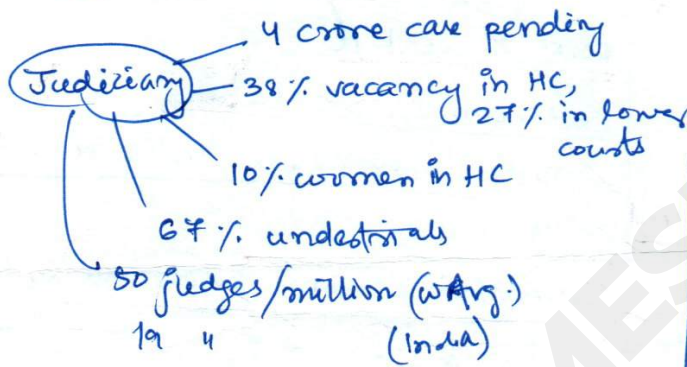 4 crore case pending
Judiciary
38% vacancy in HC,
27% in lower
courts
10% women in HC
67% undertrials
50 judges/million (wAvg.)
19 " (India)
MES